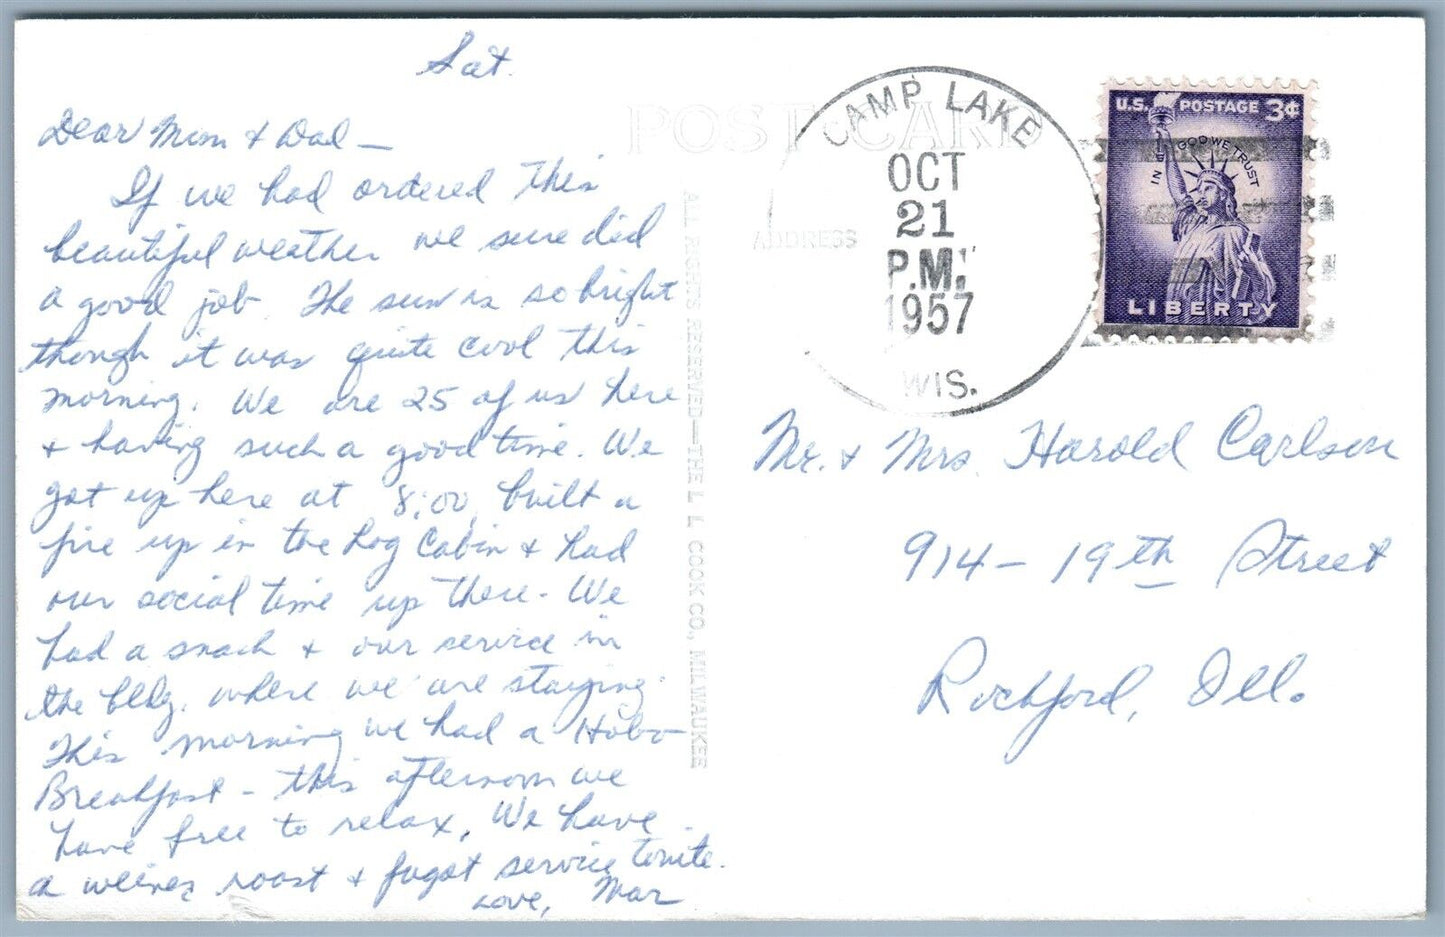 Sat.
Dear Mom + Dad —
If we had ordered this
beautiful weather we sure did
a good job. The sun is so bright
though it was quite cool this
morning. We are 25 of us here
+ having such a good time. We
got up here at 8:00, built a
fire up in the Log Cabin + had
our social time up there - We
had a snack + our service in
the bldg. where we are staying.
This morning we had a Hobo
Breakfast - this afternoon we
have free to relax. We have
a weiner roast + fagot service tonite.
Love, Mar
POST CARD
ADDRESS
ALL RIGHTS RESERVED—THE L L COOK CO., MILWAUKEE
CAMP LAKE
OCT
21
P.M.
1957
WIS.
U.S. POSTAGE 3¢
IN GOD WE TRUST
LIBERTY
Mr. + Mrs. Harold Carlson
914 - 19th Street
Rockford, Ill.